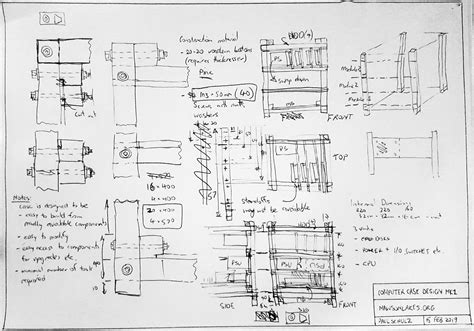 Construction material
- 20×20 wooden battens
(requires thicknesser)
Pine
- M3 × 50mm (40)
Screws with nuts
washers
cut out
16 × 400
4 × 400
20 × 400
4 × 500
Notes:
case is designed to be
- easy to build from
readily available components
- easy to modify
- easy access to components
for upgrades etc.
- minimal number of tools
required
HDD(s)
PS
swap down
MB
FRONT
Module 1
Module 2
Module 3
FRONT
PS
TOP
standoffs
may not be available
PSU
PSU
SIDE
BACK
Internal Dimensions
3 units
- HDD DISCS
- POWER + I/O SWITCHES ETC
- CPU
COMPUTER CASE DESIGN MK1
MAWSONLAKES.ORG
PAUL SCHULZ
5 FEB 2019